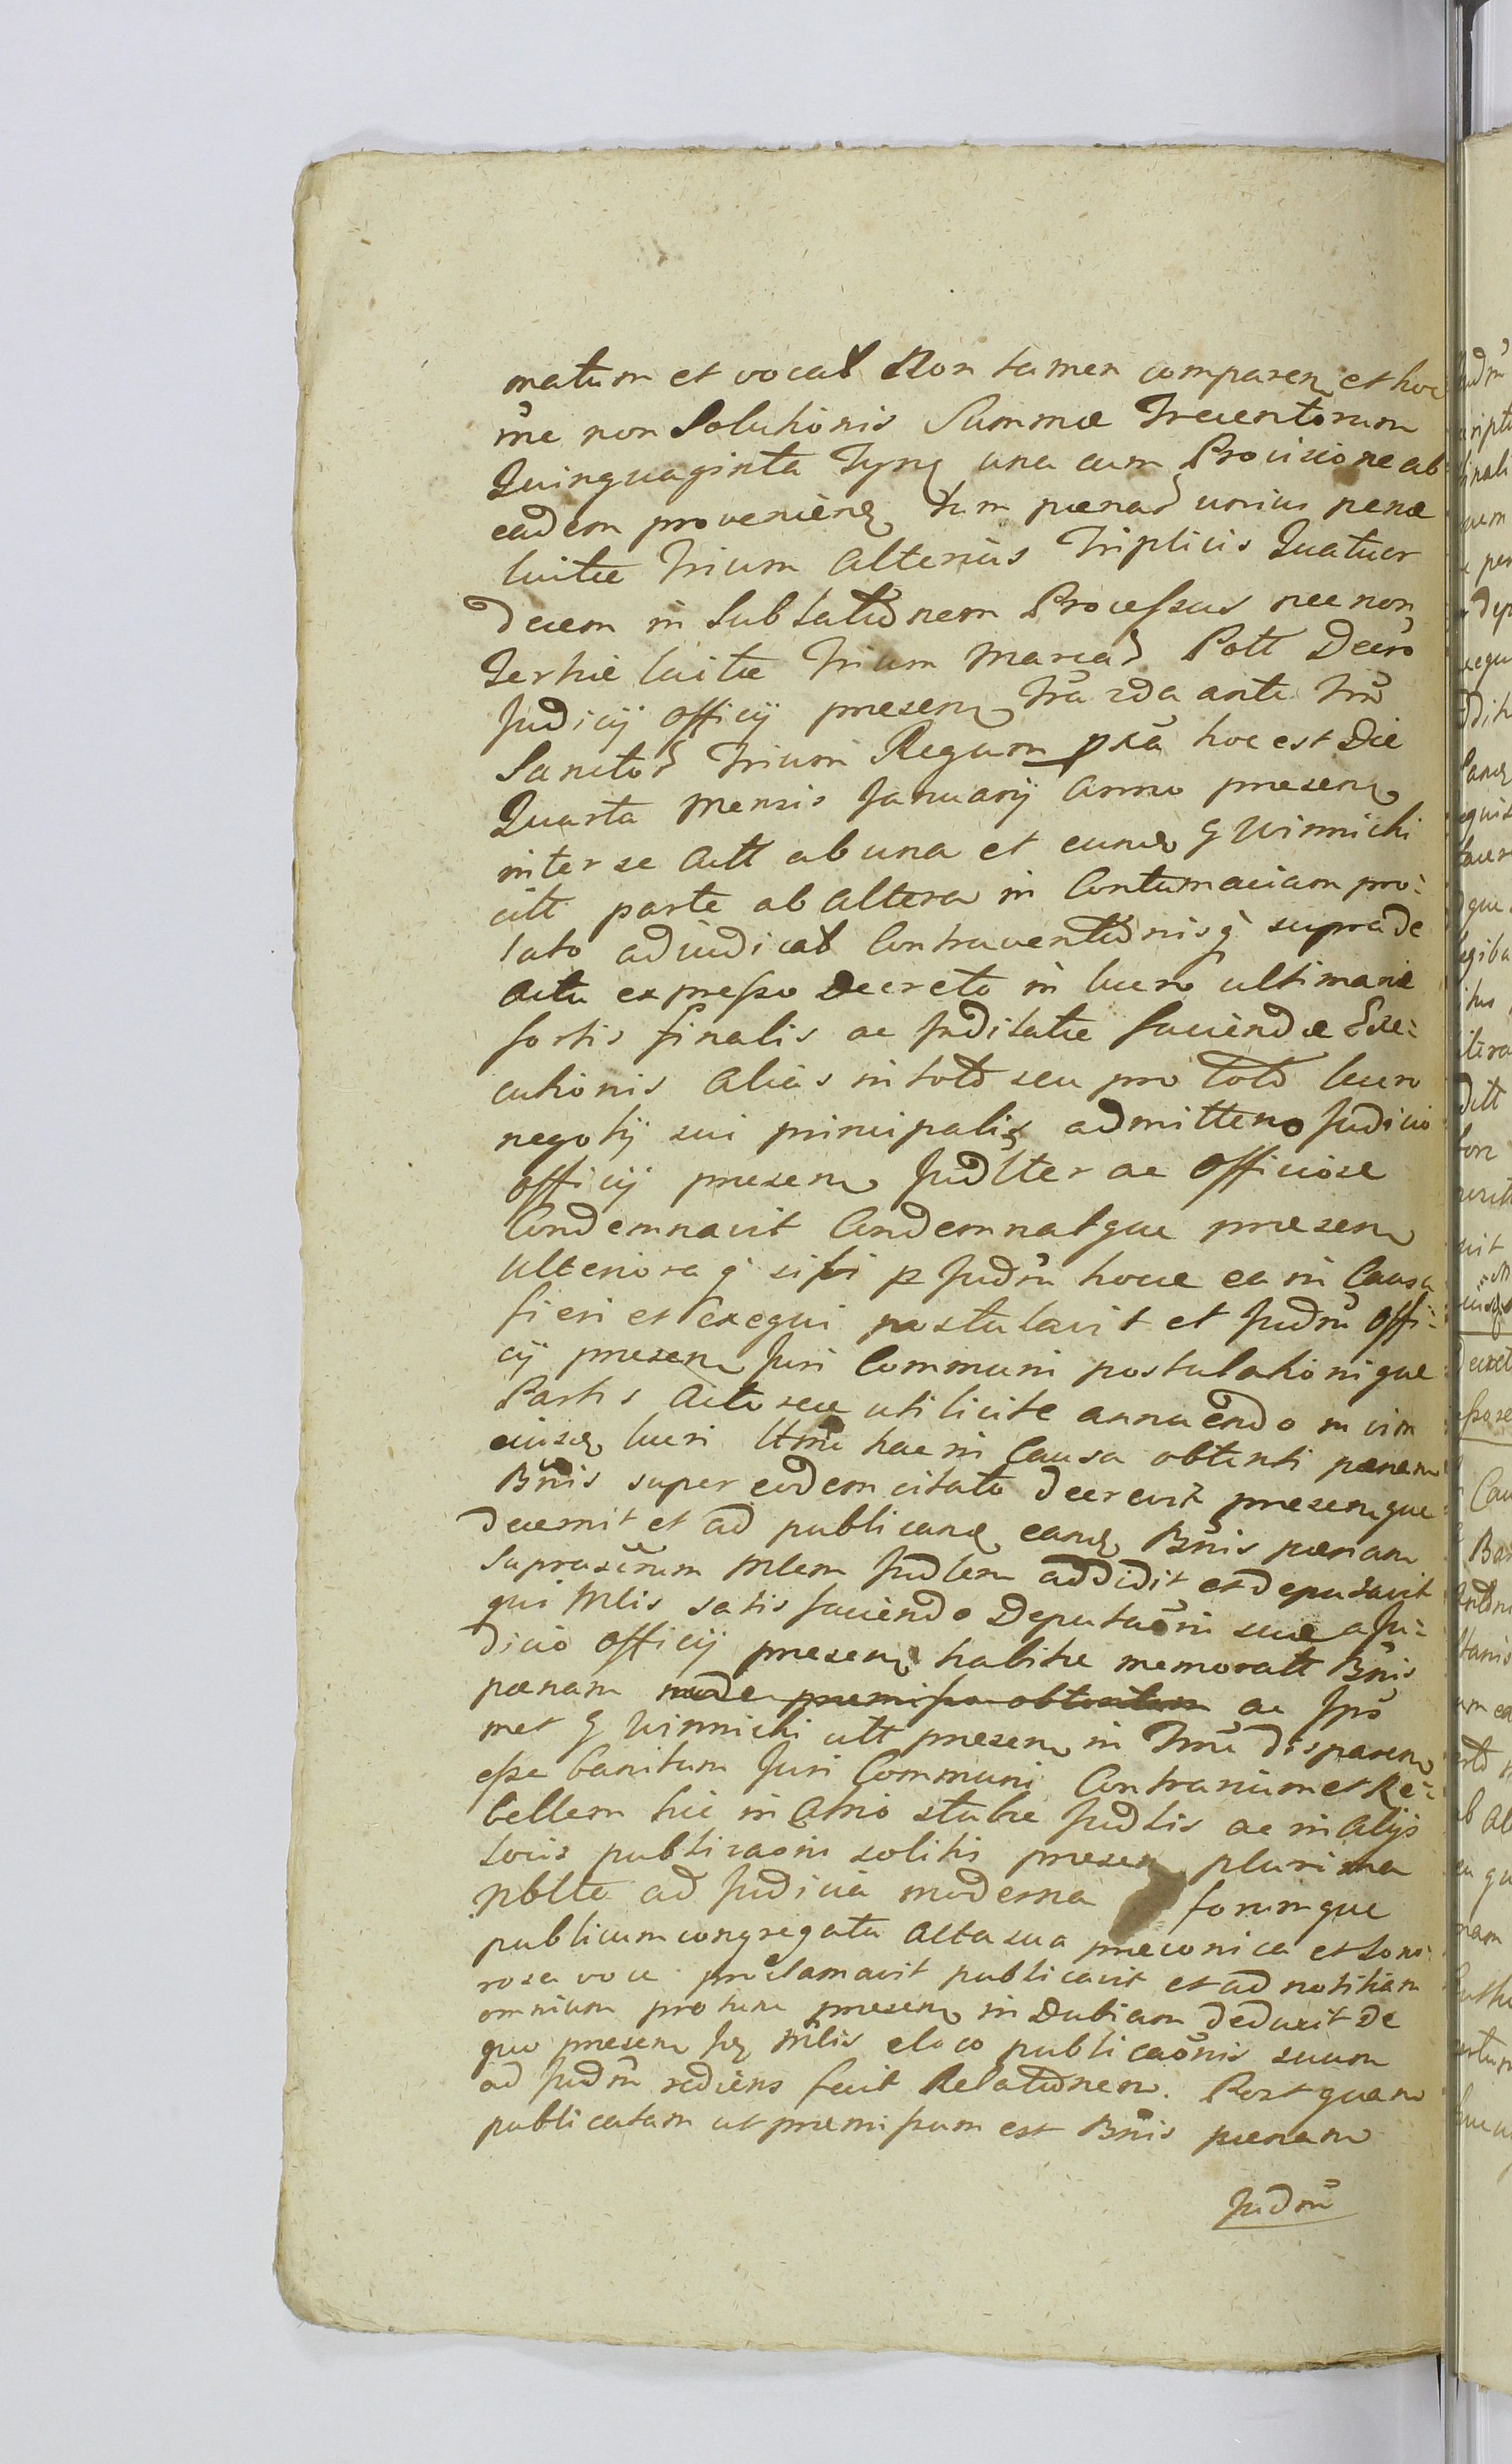 matum et vocat Non tamen comparen et hoc
rñe non Solutionis Summæ Trecentorum
Quinquaginta Tynf una cum Provisione ab
eadem provenien tum pœnas unius pœnæ
luitæ Trium Alterius Triplicis Quatuor
decem in Sublationem Processus nec non
Tertiæ luitæ Trium Marcas Patt Decro
Judicij Officij presen Fra 2da ante Frũ
Sanctor Trium Regum pxa hoc est Die
Quarta Mensis Januarij Anno presen
inter se Actt ab una et eund G Winnicki
citt parte ab Altera in Contumaciam pro-
lato adiudicat Contraventionisq suprade
Actu expresso Decreto in lucro ultimariæ
sortis finalis ac Inditatæ faciendæ Exe-
cutionis Alias in toto seu pro toto lucro
negotij sui principalis admitten Judicio
Officij presen Judlter ac Officiose
Condemnavit Condemnatque presen
Ulteriora q sibi p Judm hocce ea in Causa
fieri et exequi postulavit et Judm Offi-
cij presen Juri Communi postulationique
Partis Actoreæ uti licitæ annuendo in vim
eiusd lucri Itme hac in Causa obtenti pœnam
Bñis super eodem citato decrevit presenque
decernit et ad publicand eand Bñis pœnam
Suprascrnum Mlem Judlem addidit et deputavit
qui Mlis satis faciendo Deputaõni suæ a Ju-
dicio Officij presen habitæ memoratt Bñis
pœnam ac Ipso
met G Winnicki citt presen in Frnũ disparen
esse banitum Juri Communi Contrarium et Re-
bellem hic in Atrio stubæ Judlis ac in Alijs
locis publicaoni solitis presen plurima
nblte ad Judicia moderna forumque
publicum congregata Alta sua præconica et sono-
rosa voce proclamavit publicavit et ad notitiam
omnium pro tunc presen in dubiam deduxit De
quo presen Jq Mlis eloco publicaõnis suum
ad Judm rediens fecit Relationem. Post quam
publicatam ut præmissum est Bñis pœnam
Judm